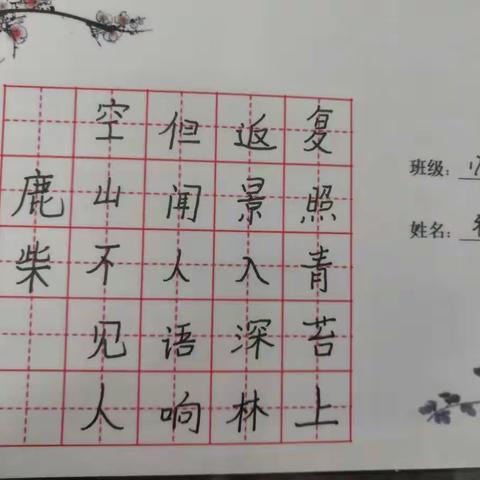 鹿柴
空山不见人
但闻人语响
返景入深林
复照青苔上
班级：
姓名：